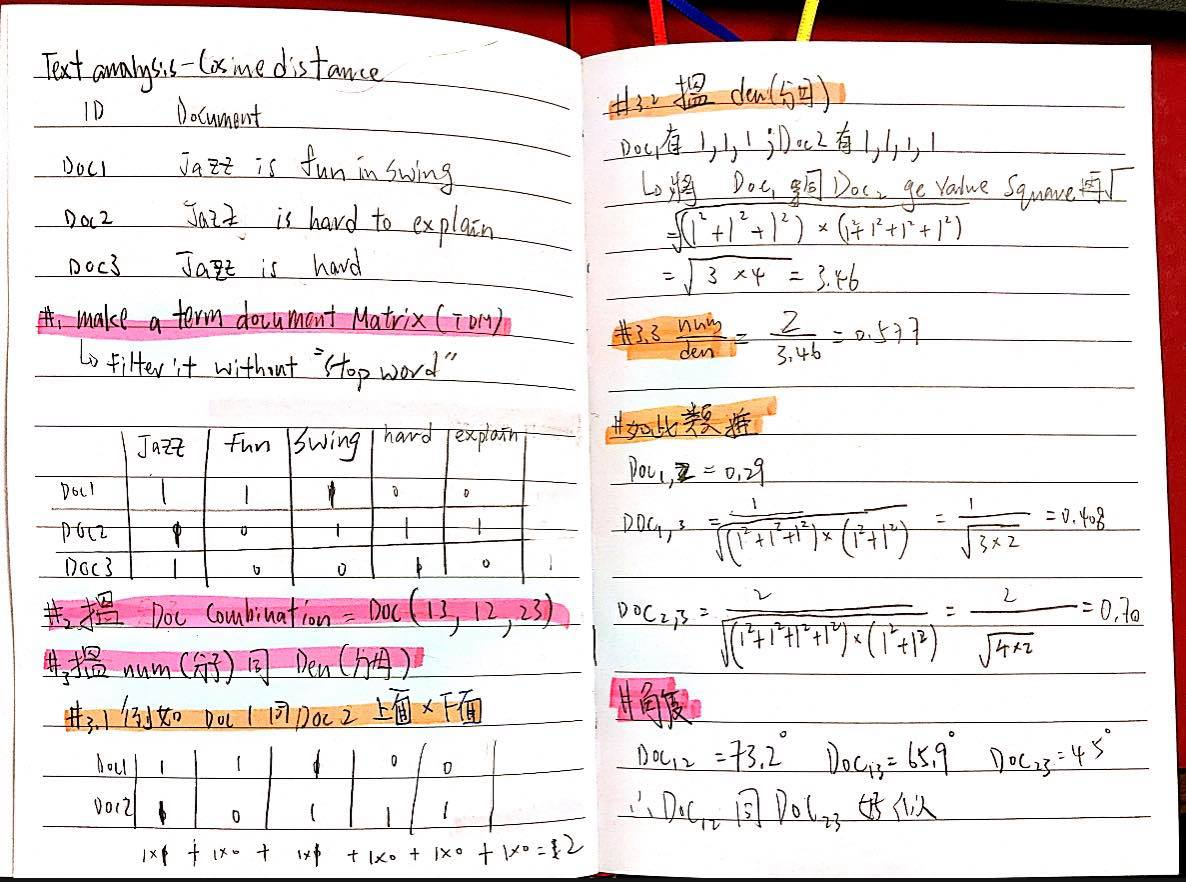 Text analysis - Cosine distance
ID Document
Doc1 Jazz is fun in swing
Doc2 Jazz is hard to explain
Doc3 Jazz is hard
#1 make a term document Matrix (TDM)
↳ Filter it without "stop word"
Jazz fun swing hard explain
Doc1 1 1 1 0 0
Doc2 1 0 1 1 1
Doc3 1 0 0 1 0
#2 搵 Doc Combination = Doc (13, 12, 23)
#3 搵 num (分子) 同 Den (分母)
#3.1 例如 Doc 1 同 Doc 2 上面 × 下面
Doc1 1 1 1 0 0
Doc2 1 0 1 1 1
1×1 + 1×0 + 1×1 + 1×0 + 1×0 + 1×0 = 2
#3.2 搵 den (分母)
Doc1 有 1,1,1 ; Doc2 有 1,1,1,1
↳ 將 Doc1 同 Doc2 ge value square 再√
=√(1²+1²+1²) × (1²+1²+1²+1²)
= √3×4 = 3.46
#3.3 num/den = 2/3.46 = 0.577
#如此類推
Doc1,2 = 0.29
Doc1,3 = 1/√(1²+1²+1²)×(1²+1²) = 1/√3×2 = 0.408
Doc2,3 = 2/√(1²+1²+1²+1²)×(1²+1²) = 2/√4×2 = 0.70
#角度
Doc12 = 73.2° Doc13 = 65.9° Doc23 = 45°
∴ Doc12 同 Doc23 好似